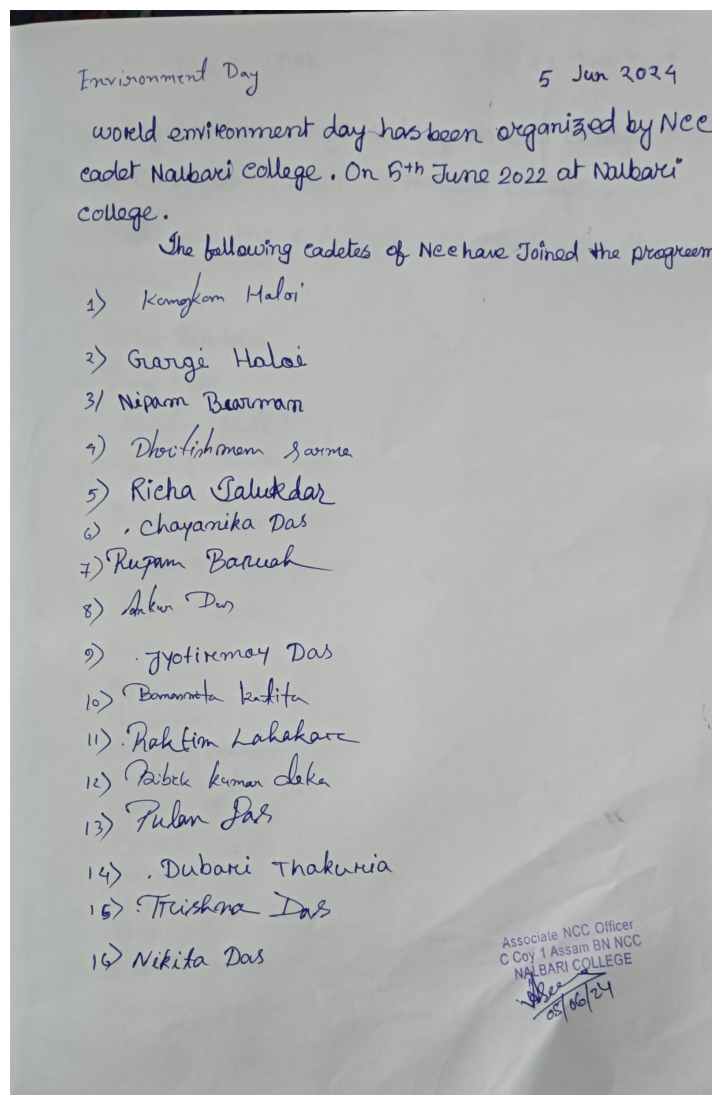 Environment Day
5 Jun 2024
world environment day has been organized by Ncc
cadet Nalbari college. On 5th June 2022 at Nalbari
college.
The following cadetes of Ncc have Joined the progreem
1) Kamgkam Haloi
2) Gargi Haloi
3/ Nipam Bearman
4) Sarma
5) Richa Talukdar
6) . Chayanika Das
7) Rupam Baruah
8) Ankur Das
9) . Jyotiremoy Das
10) kalita
11) . Raktim Lahakare
12) Bibek kumar deka
13) Pulan Das
14) . Dubari Thakuria
15) . Trishna Das
16) Nikita Das
Associate NCC Officer
C Coy 1 Assam BN NCC
NALBARI COLLEGE
05/06/24